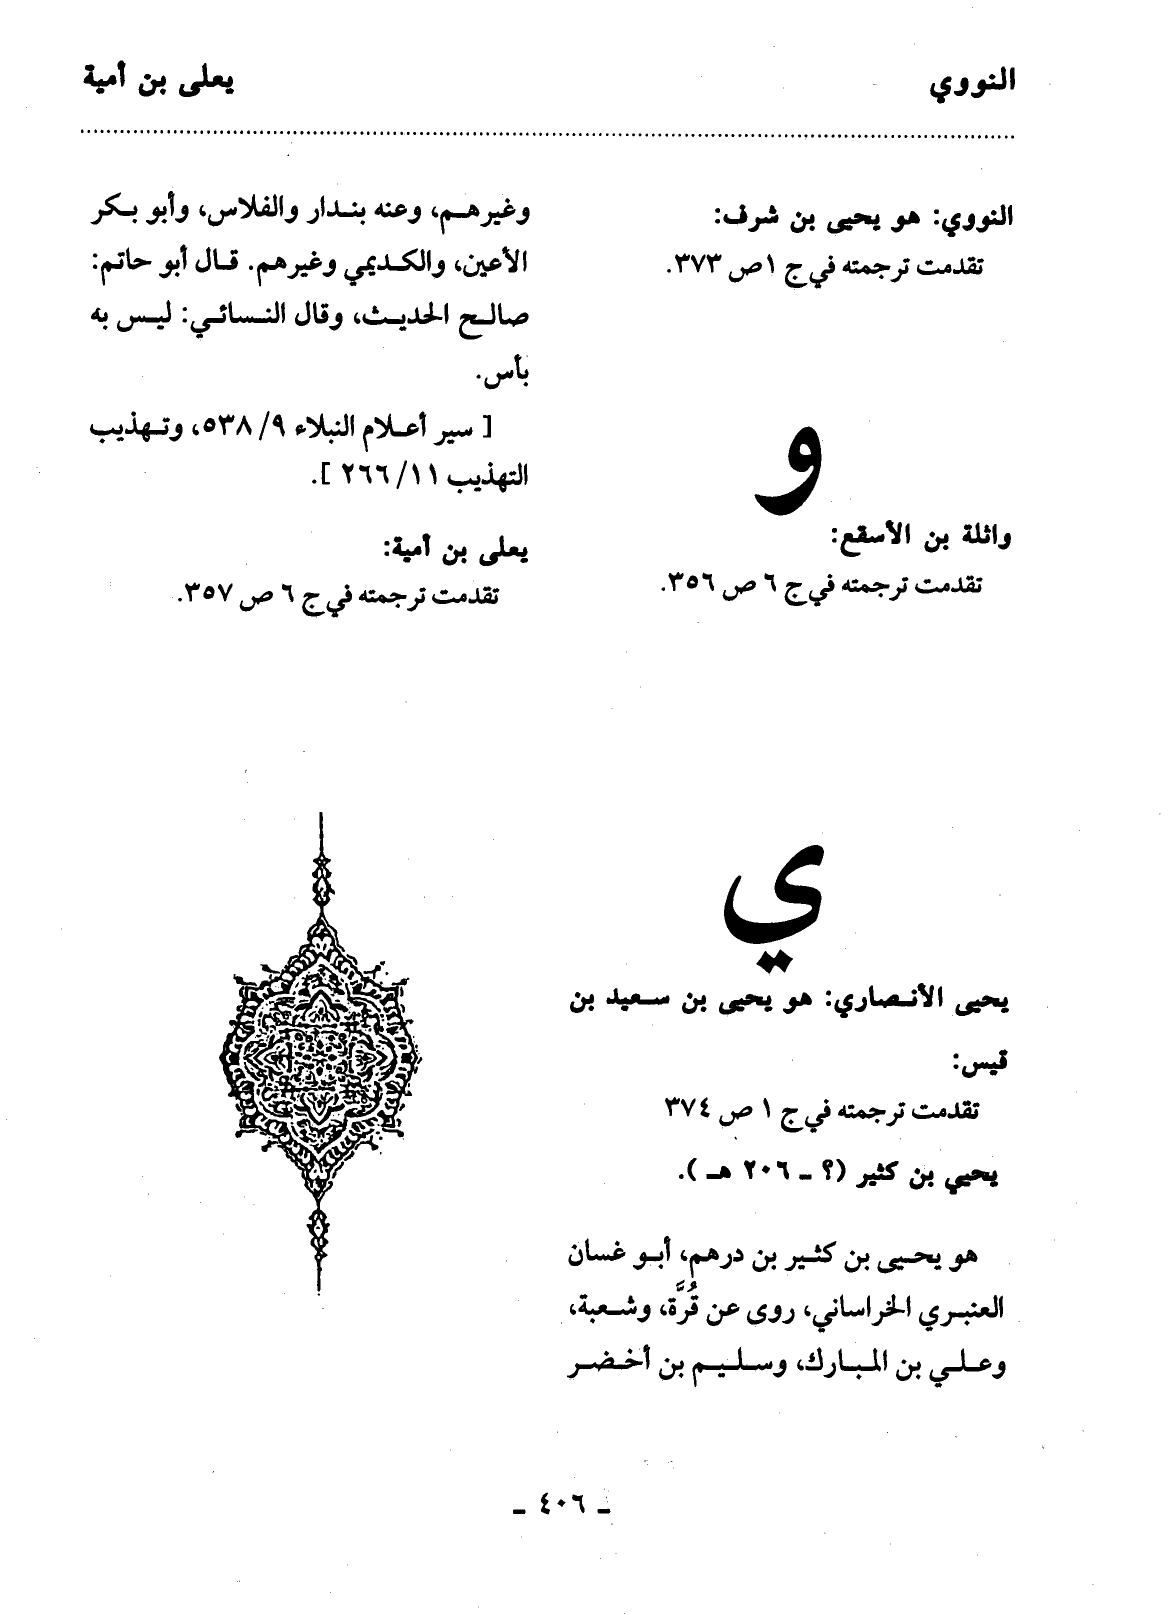 النووي
يعلى بن أمية
النووي: هو يحيى بن شرف:
تقدمت ترجمته في ج ١ ص ٣٧٣.
و
واثلة بن الأسقع:
تقدمت ترجمته في ج ٦ ص ٣٥٦.
ي
يحيى الأنصاري: هو يحيى بن سعيد بن
قيس:
تقدمت ترجمته في ج ١ ص ٣٧٤
يحيي بن كثير (؟ ـ ٢٠٦ هـ ).
هو يحيى بن كثير بن درهم، أبو غسان
العنبري الخراساني، روى عن قُرَّة، وشعبة،
وعلي بن المبارك، وسليم بن أخضر
وغيرهم، وعنه بندار والفلاس، وأبو بكر
الأعين، والكديمي وغيرهم. قال أبو حاتم:
صالح الحديث، وقال النسائي: ليس به
بأس.
[ سير أعلام النبلاء ٩/ ٥٣٨، وتهذيب
التهذيب ١١/ ٢٦٦ ].
يعلى بن أمية:
تقدمت ترجمته في ج ٦ ص ٣٥٧.
ـ ٤٠٦ ـ